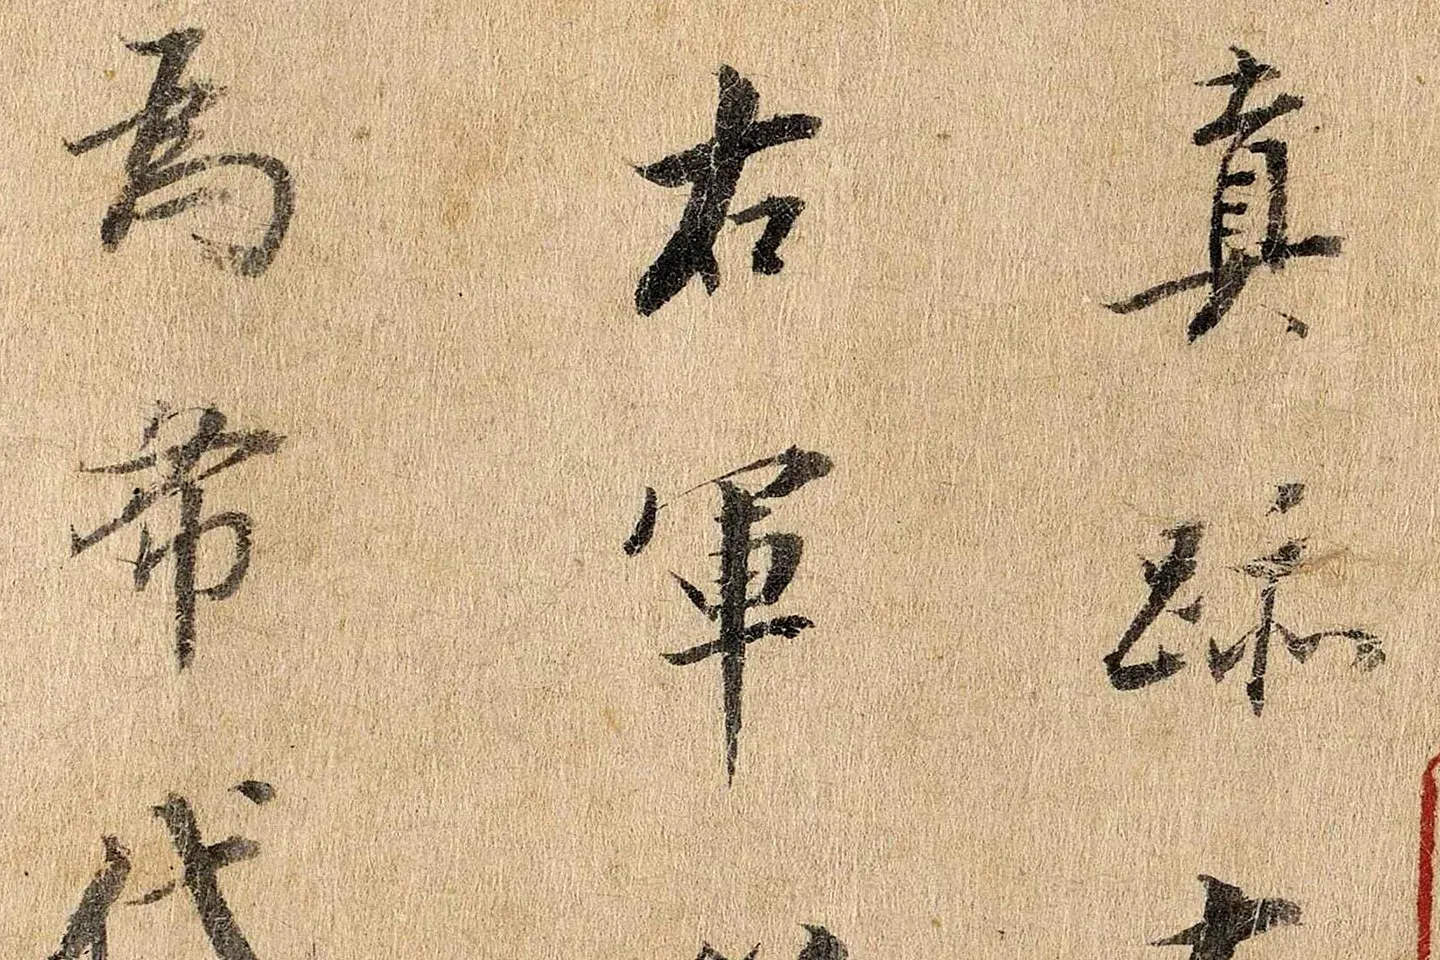 真跡
右軍
為希代